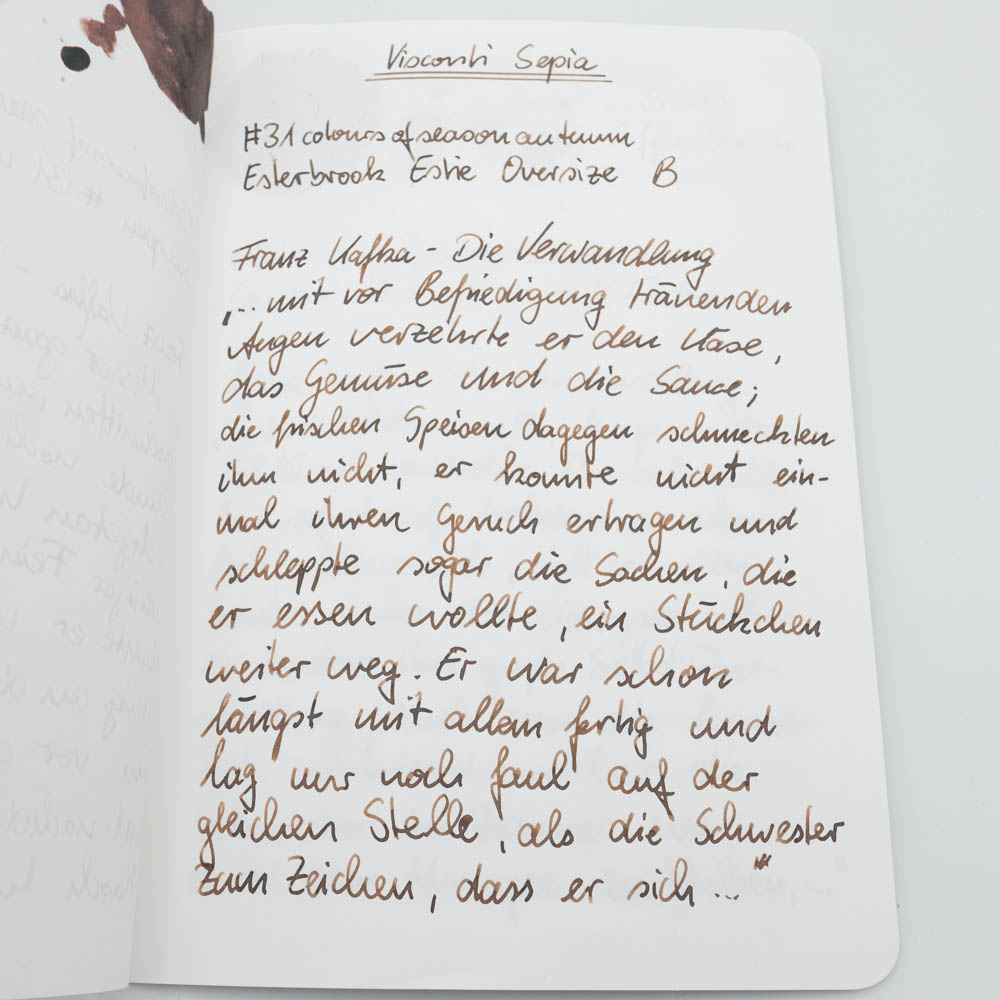 Visconti Sepia
#31coloursofseasonautumn
Esterbrook Estie Oversize B
Franz Kafka - Die Verwandlung
"... mit vor Befriedigung tränenden
Augen verzehrte er den Käse,
das Gemüse und die Sauce;
die frischen Speisen dagegen schmeckten
ihm nicht, er konnte nicht ein-
mal ihren Geruch ertragen und
schleppte sogar die Sachen, die
er essen wollte, ein Stückchen
weiter weg. Er war schon
längst mit allem fertig und
lag nur noch faul auf der
gleichen Stelle, als die Schwester
zum Zeichen, dass er sich ..."